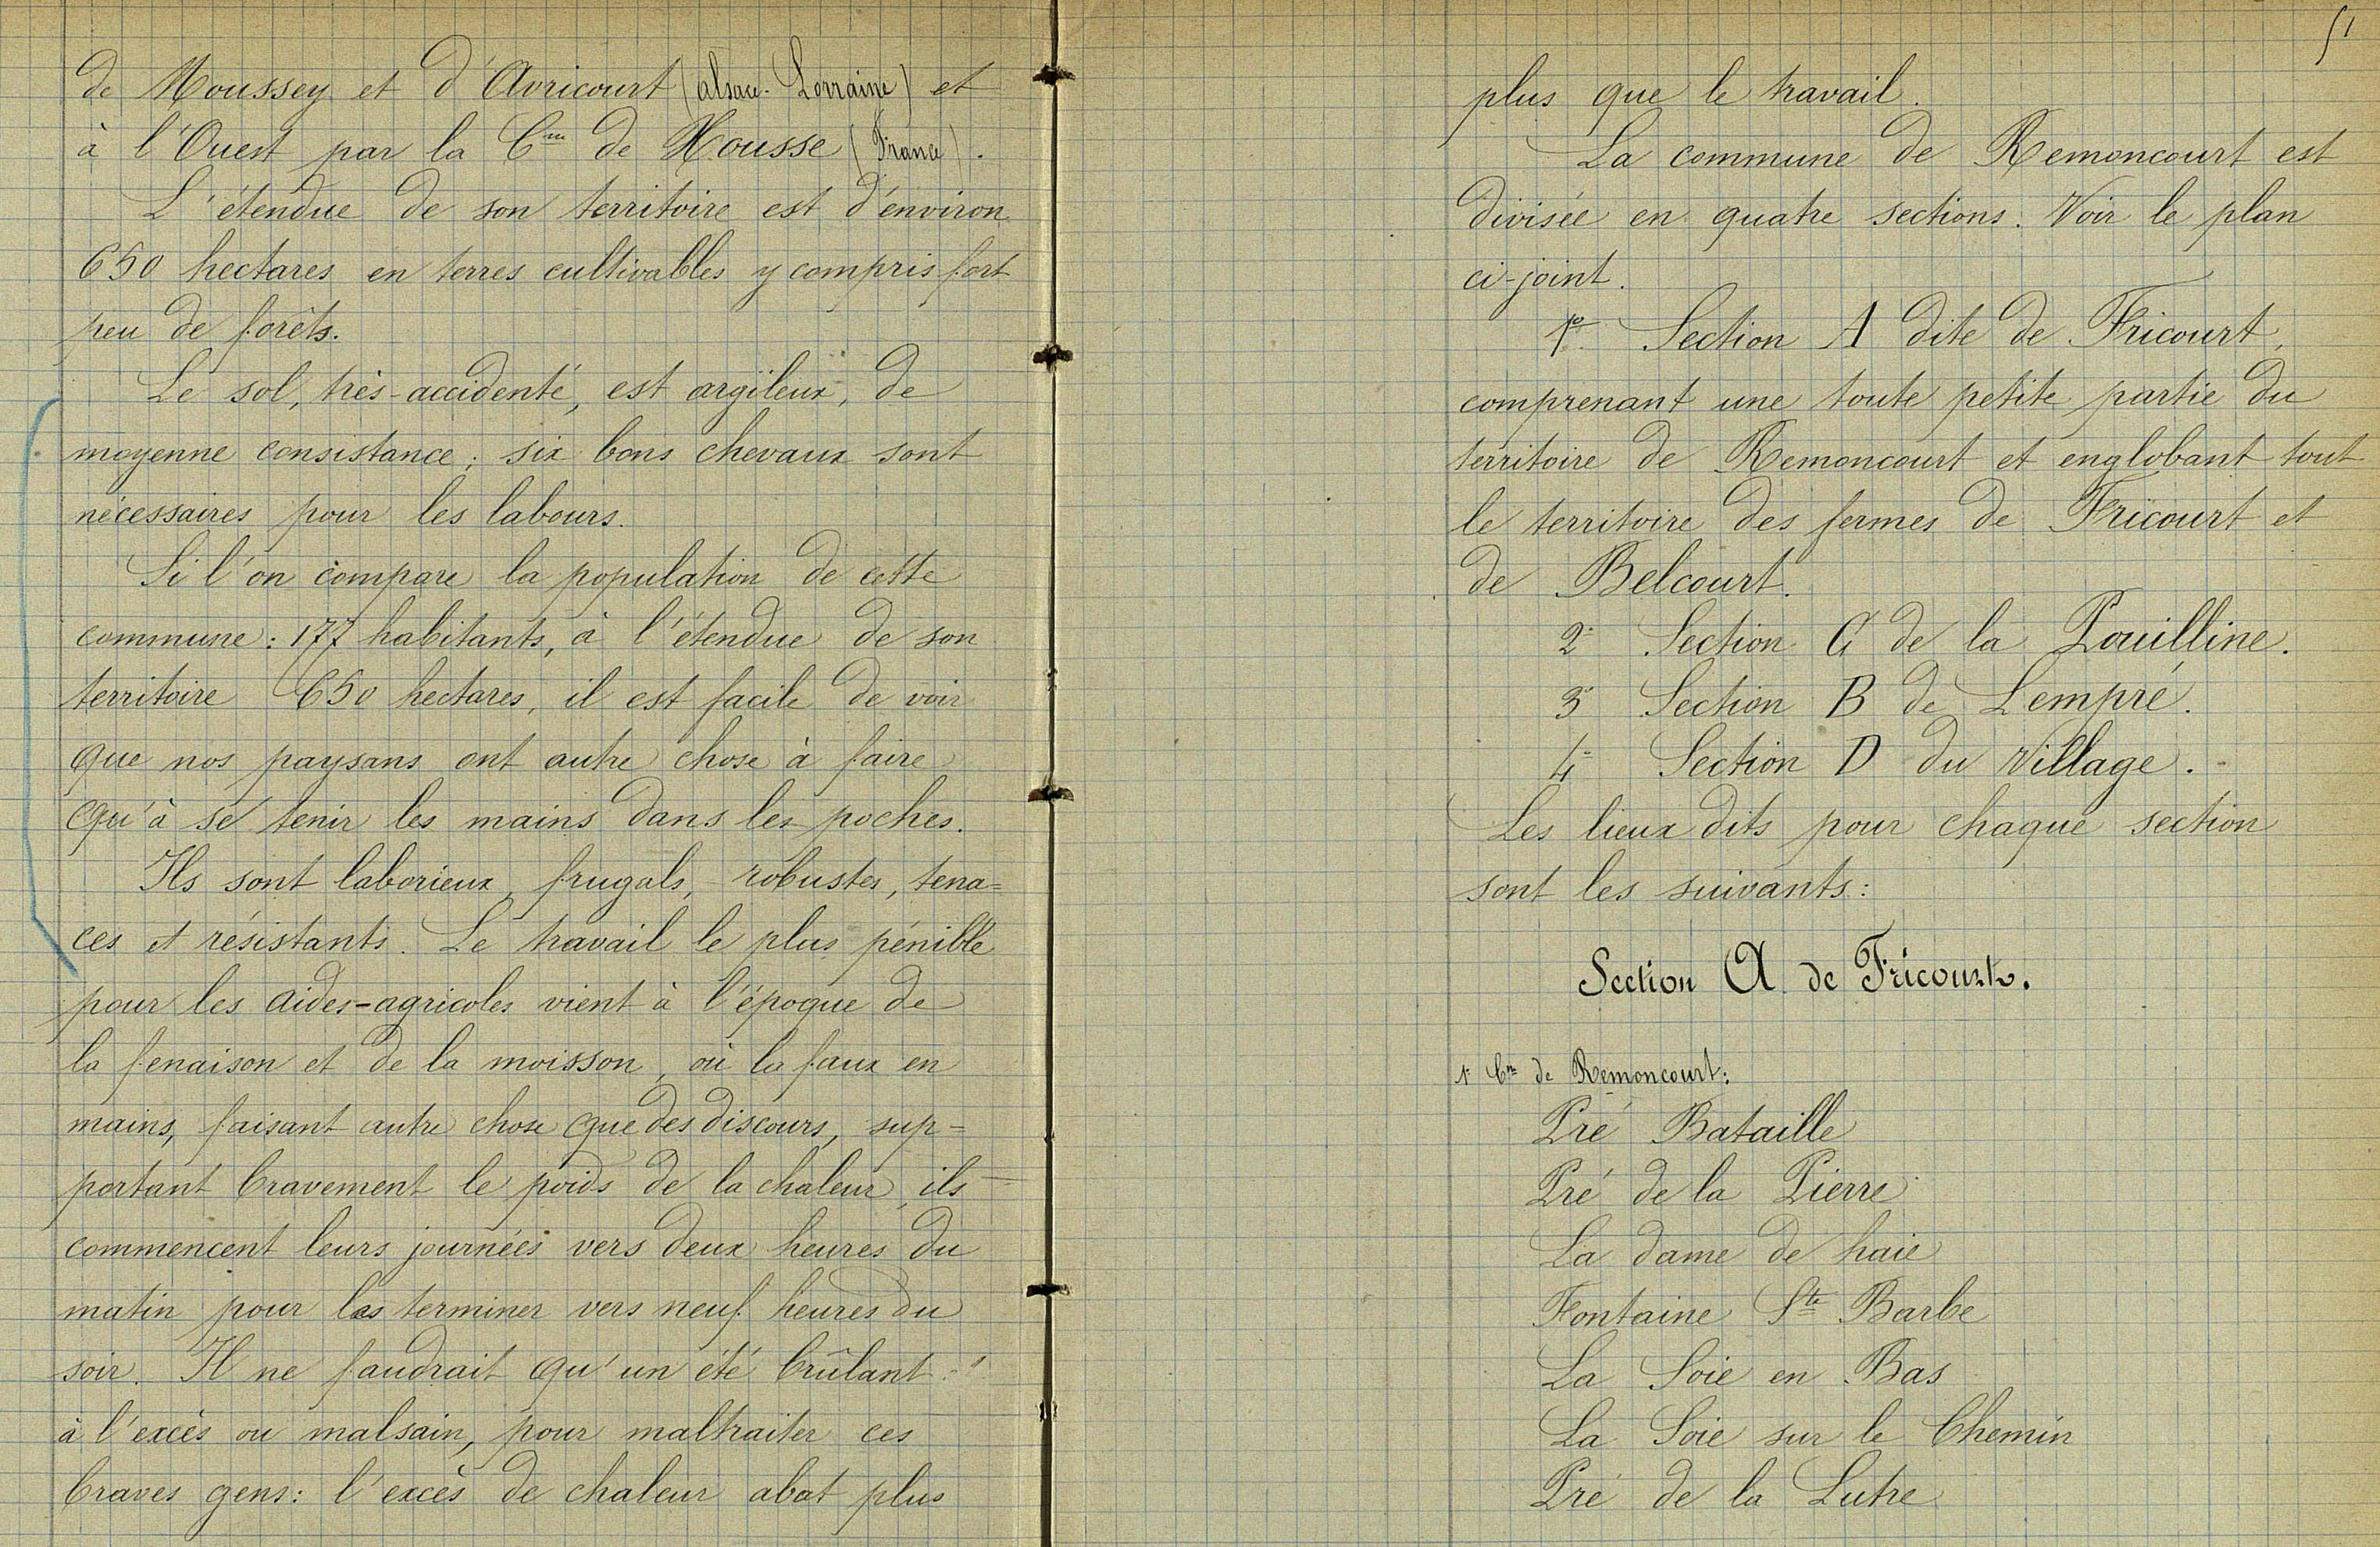 de Moussey et d'Avricourt (Alsace-Lorraine) et
à l'Ouest par la Cne de Xousse (France).
L'étendue de son territoire est d'environ
650 hectares en terres cultivables y compris fort
peu de forêts.
Le sol, très-accidenté, est argileux, de
moyenne consistance; six bons chevaux sont
nécessaires pour les labours.
Si l'on compare la population de cette
commune: 177 habitants, à l'étendue de son
territoire 650 hectares, il est facile de voir
que nos paysans ont autre chose à faire
qu'à se tenir les mains dans les poches.
Ils sont laborieux, frugals, robustes, tena=
ces et résistants. Le travail le plus pénible
pour les aides-agricoles vient à l'époque de
la fenaison et de la moisson, où la faux en
mains, faisant autre chose que des discours, sup=
portant bravement le poids de la chaleur, ils
commencent leurs journées vers deux heures du
matin pour les terminer vers neuf heures du
soir. Il ne faudrait qu'un été brûlant
à l'excès ou malsain, pour maltraiter ces
braves gens: l'excès de chaleur abat plus
51
plus que le travail.
La commune de Remoncourt est
divisée en quatre sections. Voir le plan
ci-joint.
1º Section A dite de Fricourt,
comprenant une toute petite partie du
territoire de Remoncourt et englobant tout
le territoire des fermes de Fricourt et
de Belcourt.
2º Section C de la Pouilline.
3º Section B de Lempré.
4º Section D du Village.
Les lieux dits pour chaque section
sont les suivants:
Section A de Fricourt.
1º Cne de Remoncourt:
Pré Bataille
Pré de la Pierre
La dame de haie
Fontaine Ste Barbe
La Soie en Bas
La Soie sur le Chemin
Pré de la Lutre